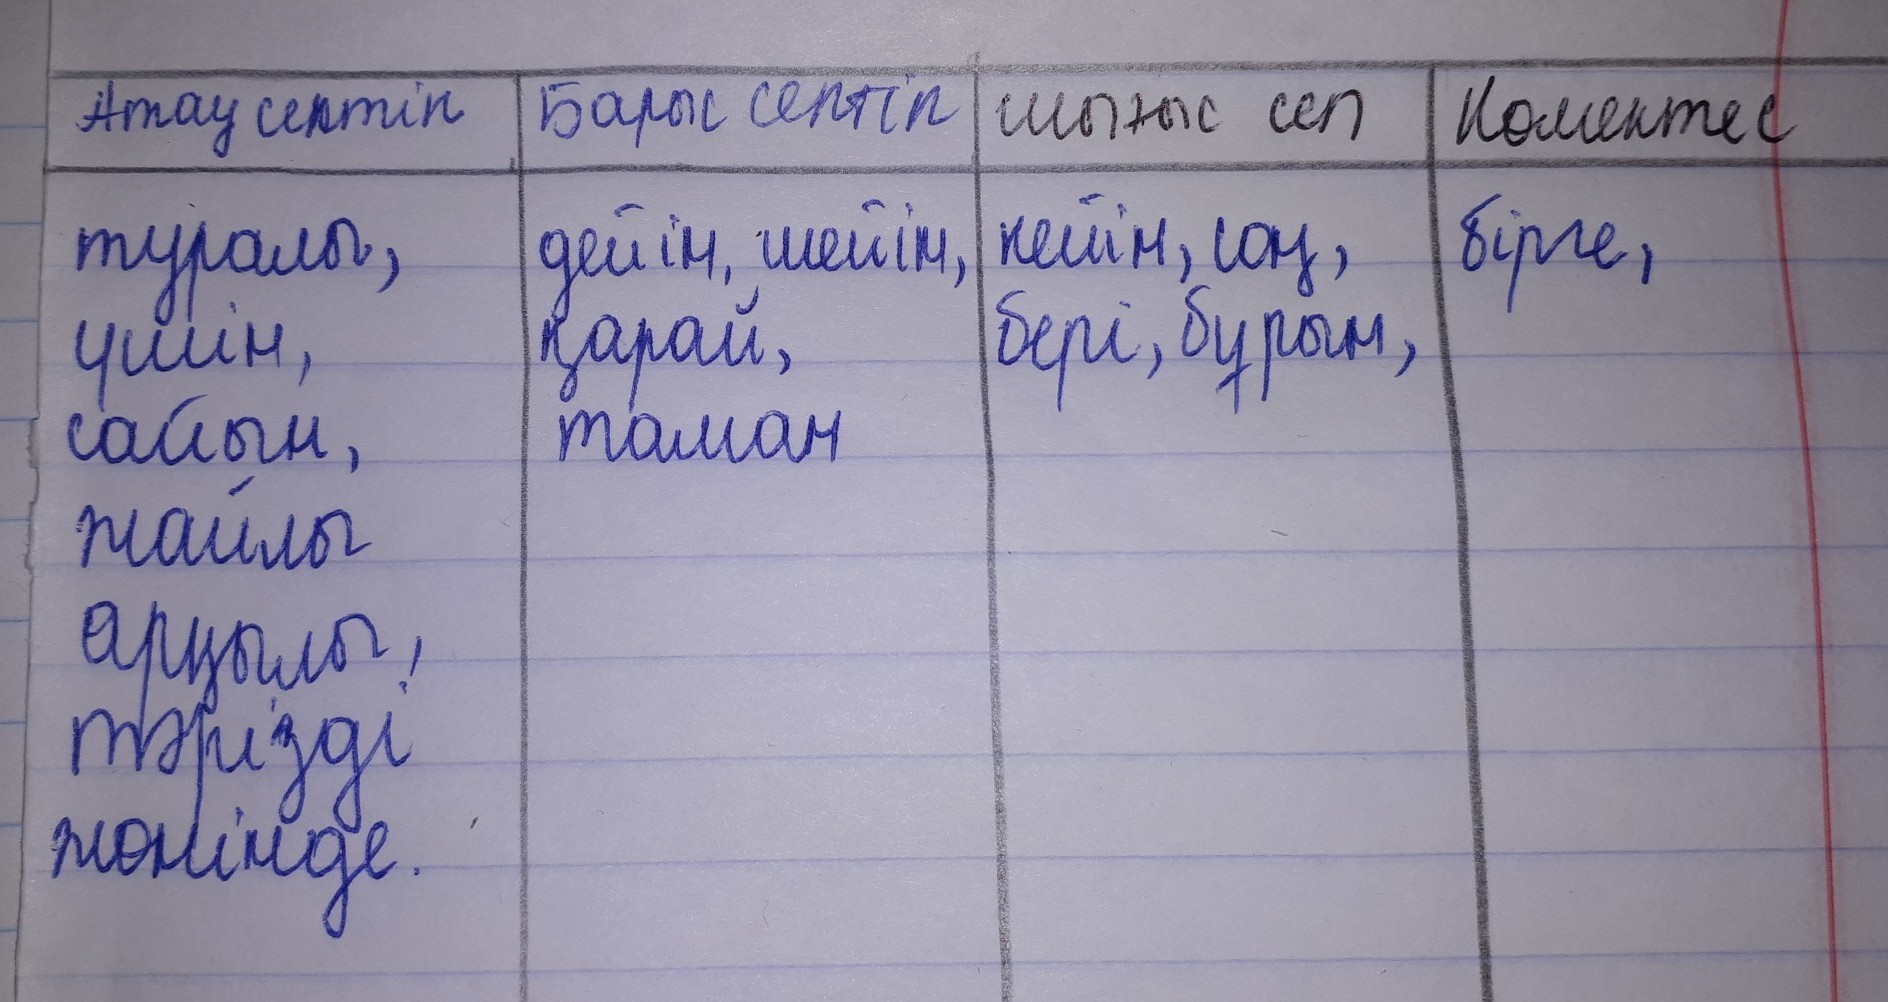 Атау септік Барыс септік шығыс сеп Көмектес
туралы, дейін, шейін, кейін, соң, бірге,
үшін, қарай, бері, бұрын,
сайын, таман
жайлы
арқылы,
тәрізді
жөнінде.